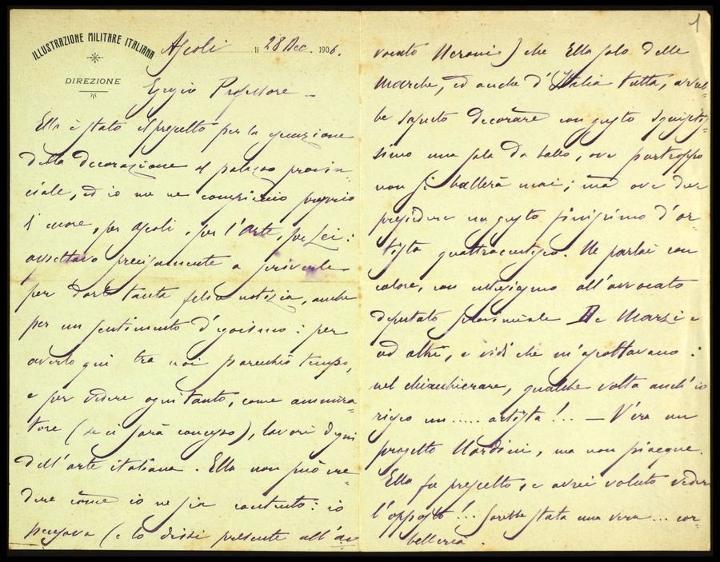 ILLUSTRAZIONE MILITARE ITALIANA
DIREZIONE
Ascoli li 28 Dec. 1906.
Egregio Professore –
Ella è stato il prescelto per la
della decorazione al palazzo provin-
ciale, ed io me ne compiaccio proprio
di cuore, per Ascoli, per l'arte, per Lei:
aspettavo precisamente a scriverle
per darle tanta felice notizia, anche
per un sentimento d'egoismo: per
averlo qui tra noi parecchio tempo,
e per vedere ogni tanto, come ammira-
tore (se ci sarà concesso), lavori degni
dell'arte italiana. Ella non può cre-
dere come io ne sia contento: io
pensava (e lo dissi presente all'av-
1
vocato Neroni) che Ella solo delle
Marche, ed anche d'Italia tutta, avreb-
be saputo decorare con gusto squisitis-
simo una sala da ballo, ove purtroppo
non si ballerà mai; ma ove deve
presiedere un gusto finissimo d'ar-
tista quattrocentesco. Ne parlai con
calore, con all'avvocato
deputato provinciale De Marzi e
ad altri, e vidi che m'ascoltavano:
nel chiacchierare, qualche volta anch'io
riesco un..... artista!.. – V'era un
progetto Nardini, ma non piacque.
Ella fu prescelto, e avrei voluto vedere
l'opposto!.. Sarebbe stata una vera... cor-
belleria.